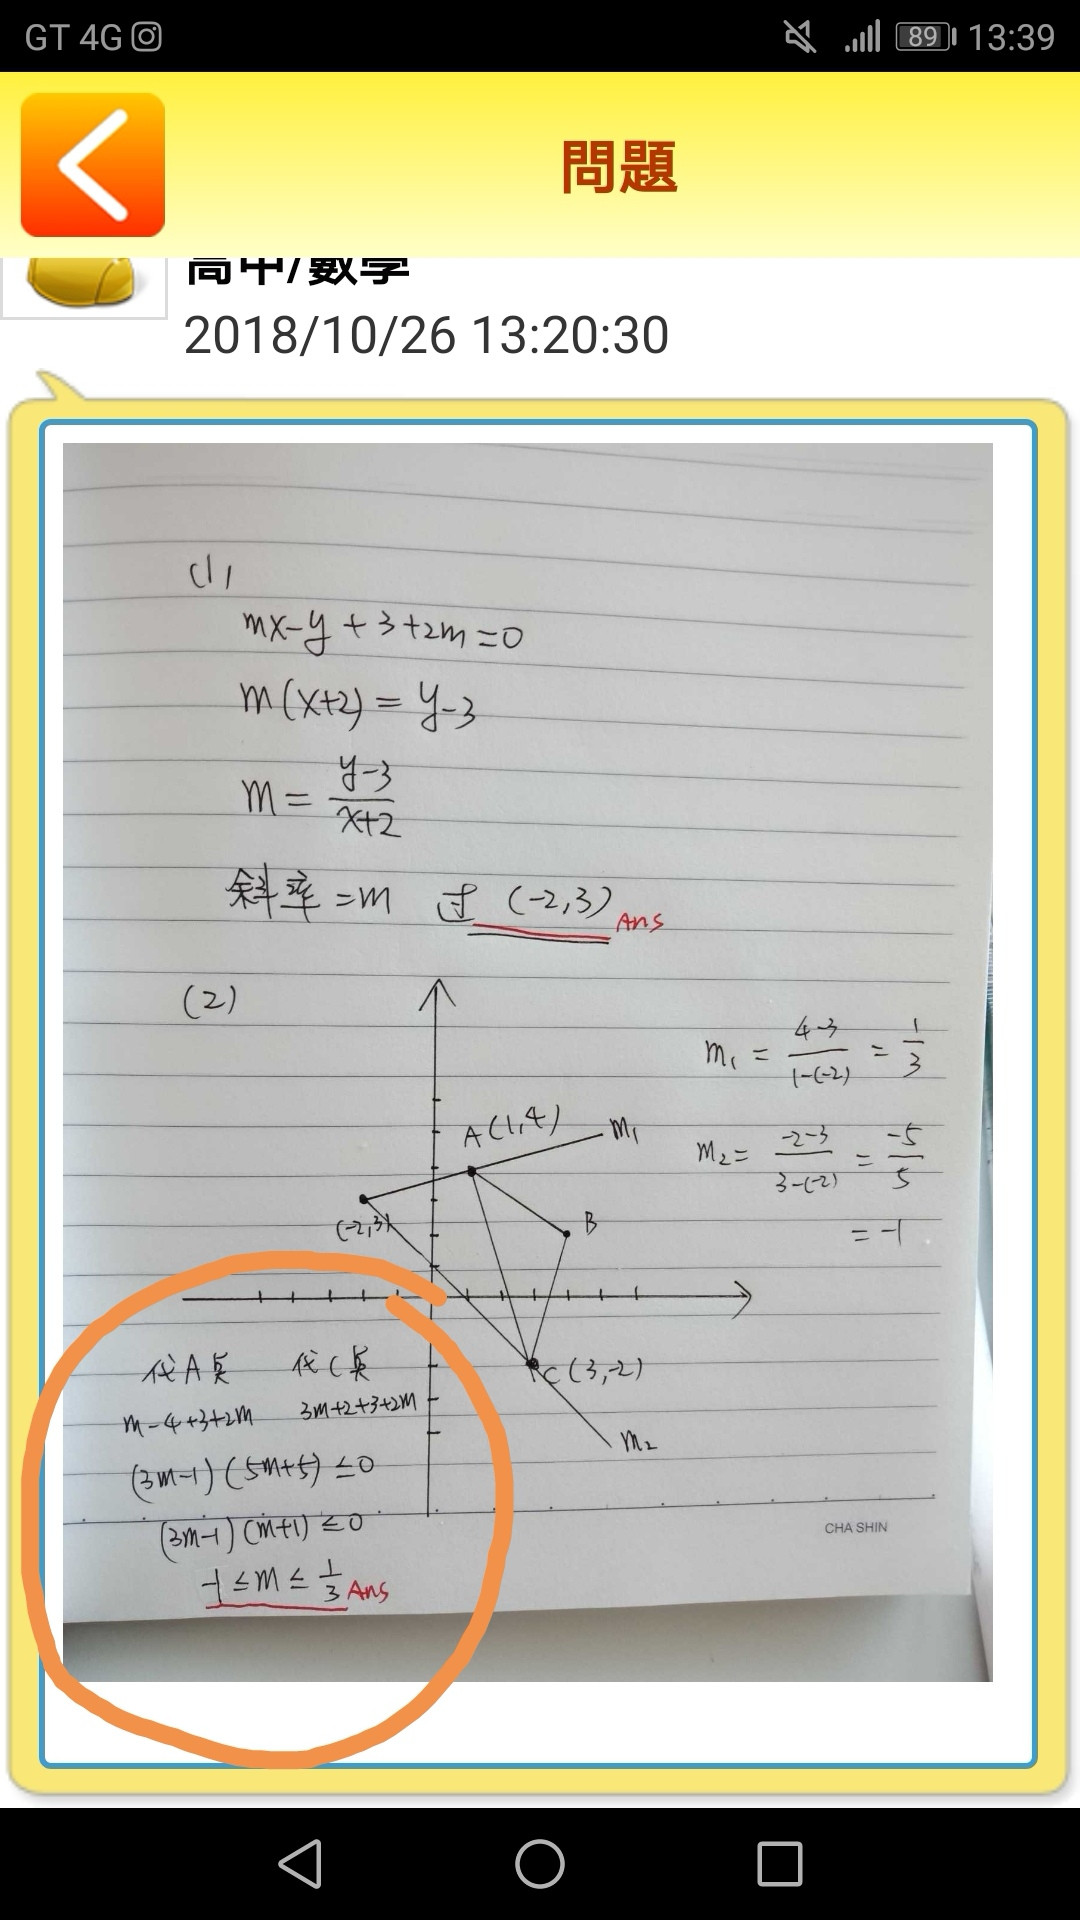 GT 4G 89 13:39
問題
高中/數學
2018/10/26 13:20:30
(1)
mx-y+3+2m=0
m(x+2)=y-3
m=\frac{y-3}{x+2}
斜率=m 过 (-2,3) Ans
(2)
m₁ = \frac{4-3}{1-(-2)} = \frac{1}{3}
A(1,4) m₁
m₂= \frac{-2-3}{3-(-2)} = \frac{-5}{5}
= -1
(-2,3)
B
代A点 代C点
C(3,-2)
m-4+3+2m 3m+2+3+2m
m₂
(3m-1)(5m+5)≤0
(3m-1)(m+1)≤0
CHA SHIN
-1≤m≤\frac{1}{3} Ans